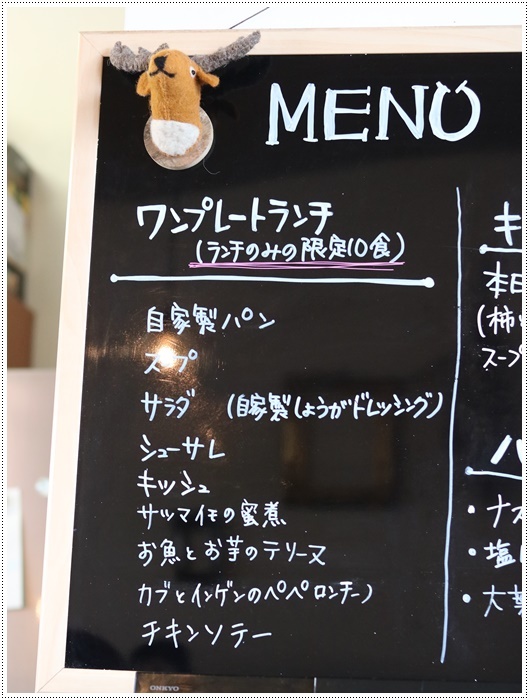 MENU
ワンプレートランチ
(ランチのみの限定10食)
自家製パン
スープ
サラダ (自家製しょうがドレッシング)
シューサレ
キッシュ
サツマイモの蜜煮
お魚とお芋のテリーヌ
カブとインゲンのペペロンチーノ
チキンソテー
キ
本日
(柿
スープ
ハ
・ナス
・塩
・大
ONKYO